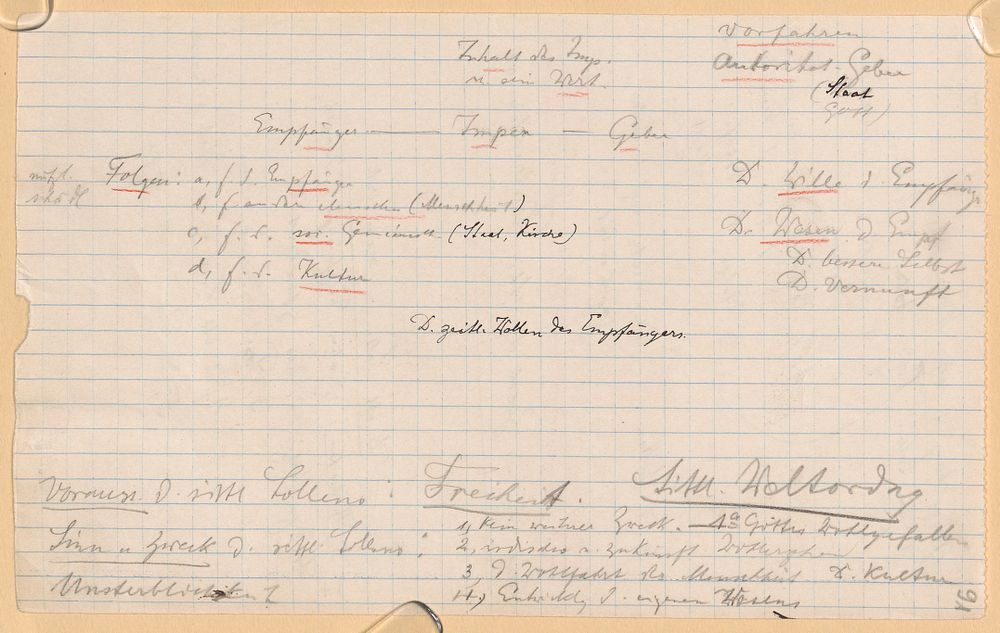 Vorfahren
Inhalt des Imp.
Autorität-Geber
u. sein Wert.
(Staat
Gott)
Empfänger — Imper — Geber
nützl.
schädl
Folgen: a, f. d. Empfänger
b, f. andere Menschen (Menschheit)
c, f. d. soz. Gemeinsch. (Staat, Kirche)
d, f. d. Kultur
D. Wille d. Empfäng
D. Wesen d. Empf
D. bessere Selbst
D. Vernunft
D. zeitl. Wollen des Empfängers.
Vorauss. d. sittl. Sollens: Freiheit. Sittl. Weltordng
Sinn u. Zweck d. sittl. Sollens:
1, Kein weiterer Zweck. 4a Gottes Wohlgefallen
2, irdisches u. zukünft
3, d. Wohlfahrt der Menschheit D. Kultur
4, Entwickl. d. eigenen Wesens
Unsterblichkeit
91